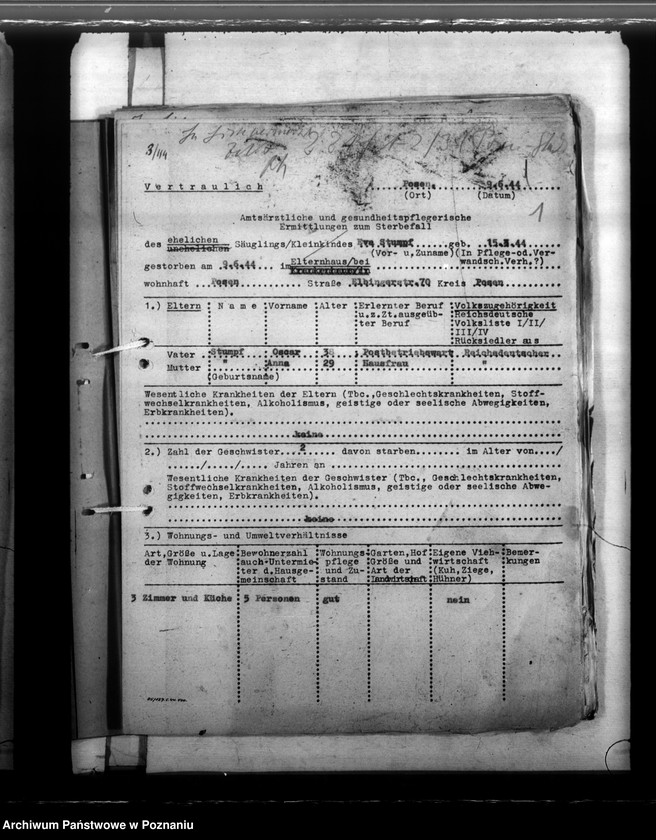 3/44
1
Vertraulich Posen, 9.6.44
(Ort) (Datum)
Amtsärztliche und gesundheitspflegerische
Ermittlungen zum Sterbefall
des ehelichen Säuglings/Kleinkindes Eva Stumpf geb. 15.
unehelichen (Vor- u, Zuname) (In Pflege-od.Ver-
gestorben am 9.6.44 im Elternhaus/bei wandsch.Verh.?)
wohnhaft Posen Straße Elbingerstr.70 Kreis Posen
1.) Eltern Name Vorname Alter Erlernter Beruf Volkszugehörigkeit
u.z.Zt.ausgeüb- Reichsdeutsche
ter Beruf Volksliste I/II/
III/IV
Rücksiedler aus
Vater Stumpf Oscar 38 Postbetriebswart Reichsdeutscher
Mutter " Anna 29 Hausfrau "
(Geburtsname)
Wesentliche Krankheiten der Eltern (Tbc.,Geschlechtskrankheiten, Stoff-
wechselkrankheiten, Alkoholismus, geistige oder seelische Abwegigkeiten,
Erbkrankheiten).
keine
2.) Zahl der Geschwister 2 davon starben........ im Alter von..../
....../...../..... Jahren an
Wesentliche Krankheiten der Geschwister (Tbc., Geschlechtskrankheiten,
Stoffwechselkrankheiten, Alkoholismus, geistige oder seelische Abwe-
gigkeiten, Erbkrankheiten).
keine
3.) Wohnungs- und Umweltverhältnisse
Art,Größe u.Lage Bewohnerzahl Wohnungs- Garten,Hof Eigene Vieh- Bemer-
der Wohnung auch Untermie- pflege Größe und wirtschaft kungen
ter d.Hausge- und Zu- Art der (Kuh,Ziege,
meinschaft stand Landwirtschaft Hühner)
3 Zimmer und Küche 5 Personen gut nein
Archiwum Państwowe w Poznaniu